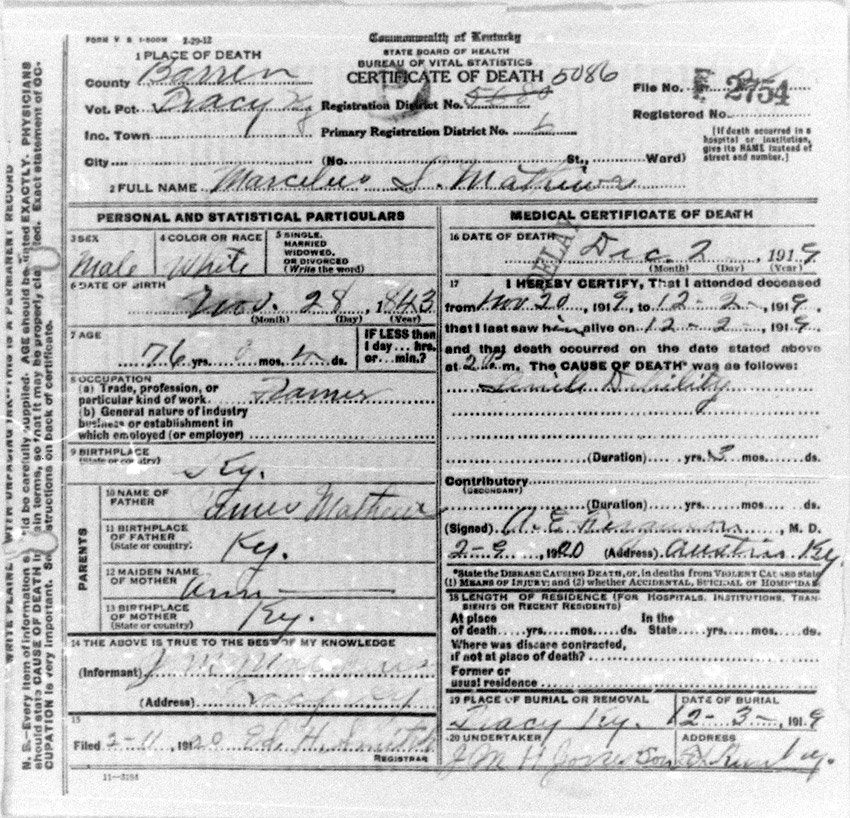 FORM V S 1-500M 2-29-12
Commonwealth of Kentucky
STATE BOARD OF HEALTH
BUREAU OF VITAL STATISTICS
CERTIFICATE OF DEATH 5086
1 PLACE OF DEATH
County Barren
Vot. Pct Tracy Ky Registration District No. 5680
Inc. Town Primary Registration District No.
City (No. St., Ward)
File No. 2754
Registered No.
[If death occurred in a hospital or institution, give its NAME instead of street and number.]
2 FULL NAME Marcellus S. Mathews
PERSONAL AND STATISTICAL PARTICULARS
3 SEX Male
4 COLOR OR RACE White
5 SINGLE, MARRIED WIDOWED, OR DIVORCED (Write the word)
6 DATE OF BIRTH Nov. 28, 1843
(Month) (Day) (Year)
7 AGE 76 yrs. mos. ds.
IF LESS than 1 day... hrs. or... min.?
8 OCCUPATION
(a) Trade, profession, or particular kind of work Farmer
(b) General nature of industry business or establishment in which employed (or employer)
9 BIRTHPLACE (State or country) Ky.
PARENTS
10 NAME OF FATHER James Mathews
11 BIRTHPLACE OF FATHER (State or country) Ky.
12 MAIDEN NAME OF MOTHER Ann
13 BIRTHPLACE OF MOTHER (State or country) Ky.
14 THE ABOVE IS TRUE TO THE BEST OF MY KNOWLEDGE
(Informant) J
(Address) Tracy Ky
15
Filed 2-11, 1920 Ed. H. Smith
REGISTRAR
11-3184
MEDICAL CERTIFICATE OF DEATH
DELAY
16 DATE OF DEATH Dec. 2, 1919
(Month) (Day) (Year)
17 I HEREBY CERTIFY, That I attended deceased
from Nov 20, 1919, to 12-2-, 1919,
that I last saw him alive on 12-2-, 1919,
and that death occurred on the date stated above
at 2 P m. The CAUSE OF DEATH* was as follows:
Senile Debility
(Duration) yrs. 3 mos. ds.
Contributory (SECONDARY)
(Duration) yrs. mos. ds.
(Signed) A. E. Ferguson, M. D.
2-9, 1920 (Address) Austin Ky.
*State the DISEASE CAUSING DEATH, or, in deaths from VIOLENT CAUSES state (1) MEANS OF INJURY; and (2) whether ACCIDENTAL, SUICIDAL OR HOMICIDAL
18 LENGTH OF RESIDENCE (FOR HOSPITALS, INSTITUTIONS, TRANSIENTS OR RECENT RESIDENTS)
At place of death yrs. mos. ds. In the State yrs. mos. ds.
Where was disease contracted, if not at place of death?
Former or usual residence
19 PLACE OF BURIAL OR REMOVAL Tracy Ky.
DATE OF BURIAL 12-3-, 1919
20 UNDERTAKER J M H Jones Son
ADDRESS
WRITE PLAINLY WITH UNFADING INK—THIS IS A PERMANENT RECORD